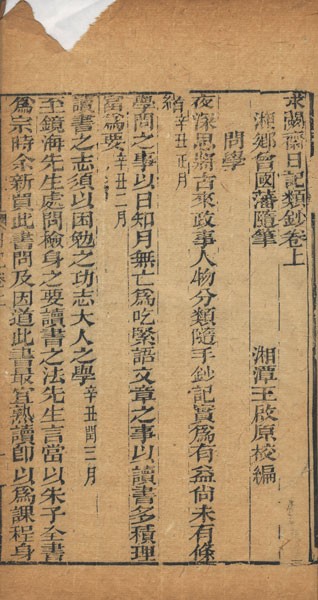 求闕齋日記類鈔卷上
湘鄉曾國藩隨筆　湘潭王啟原校編
問學
夜深思將古來政事人物分類隨手鈔記實爲有益尙未有條
緒辛丑正月
學問之事以日知月無亡爲吃緊語文章之事以讀書多積理
富爲要辛丑二月
讀書之志須以困勉之功志大人之學辛丑閏三月
至鏡海先生處問檢身之要讀書之法先生言當以朱子全書
爲宗時余新買此書問及因道此書最宜熟讀卽以爲課程身